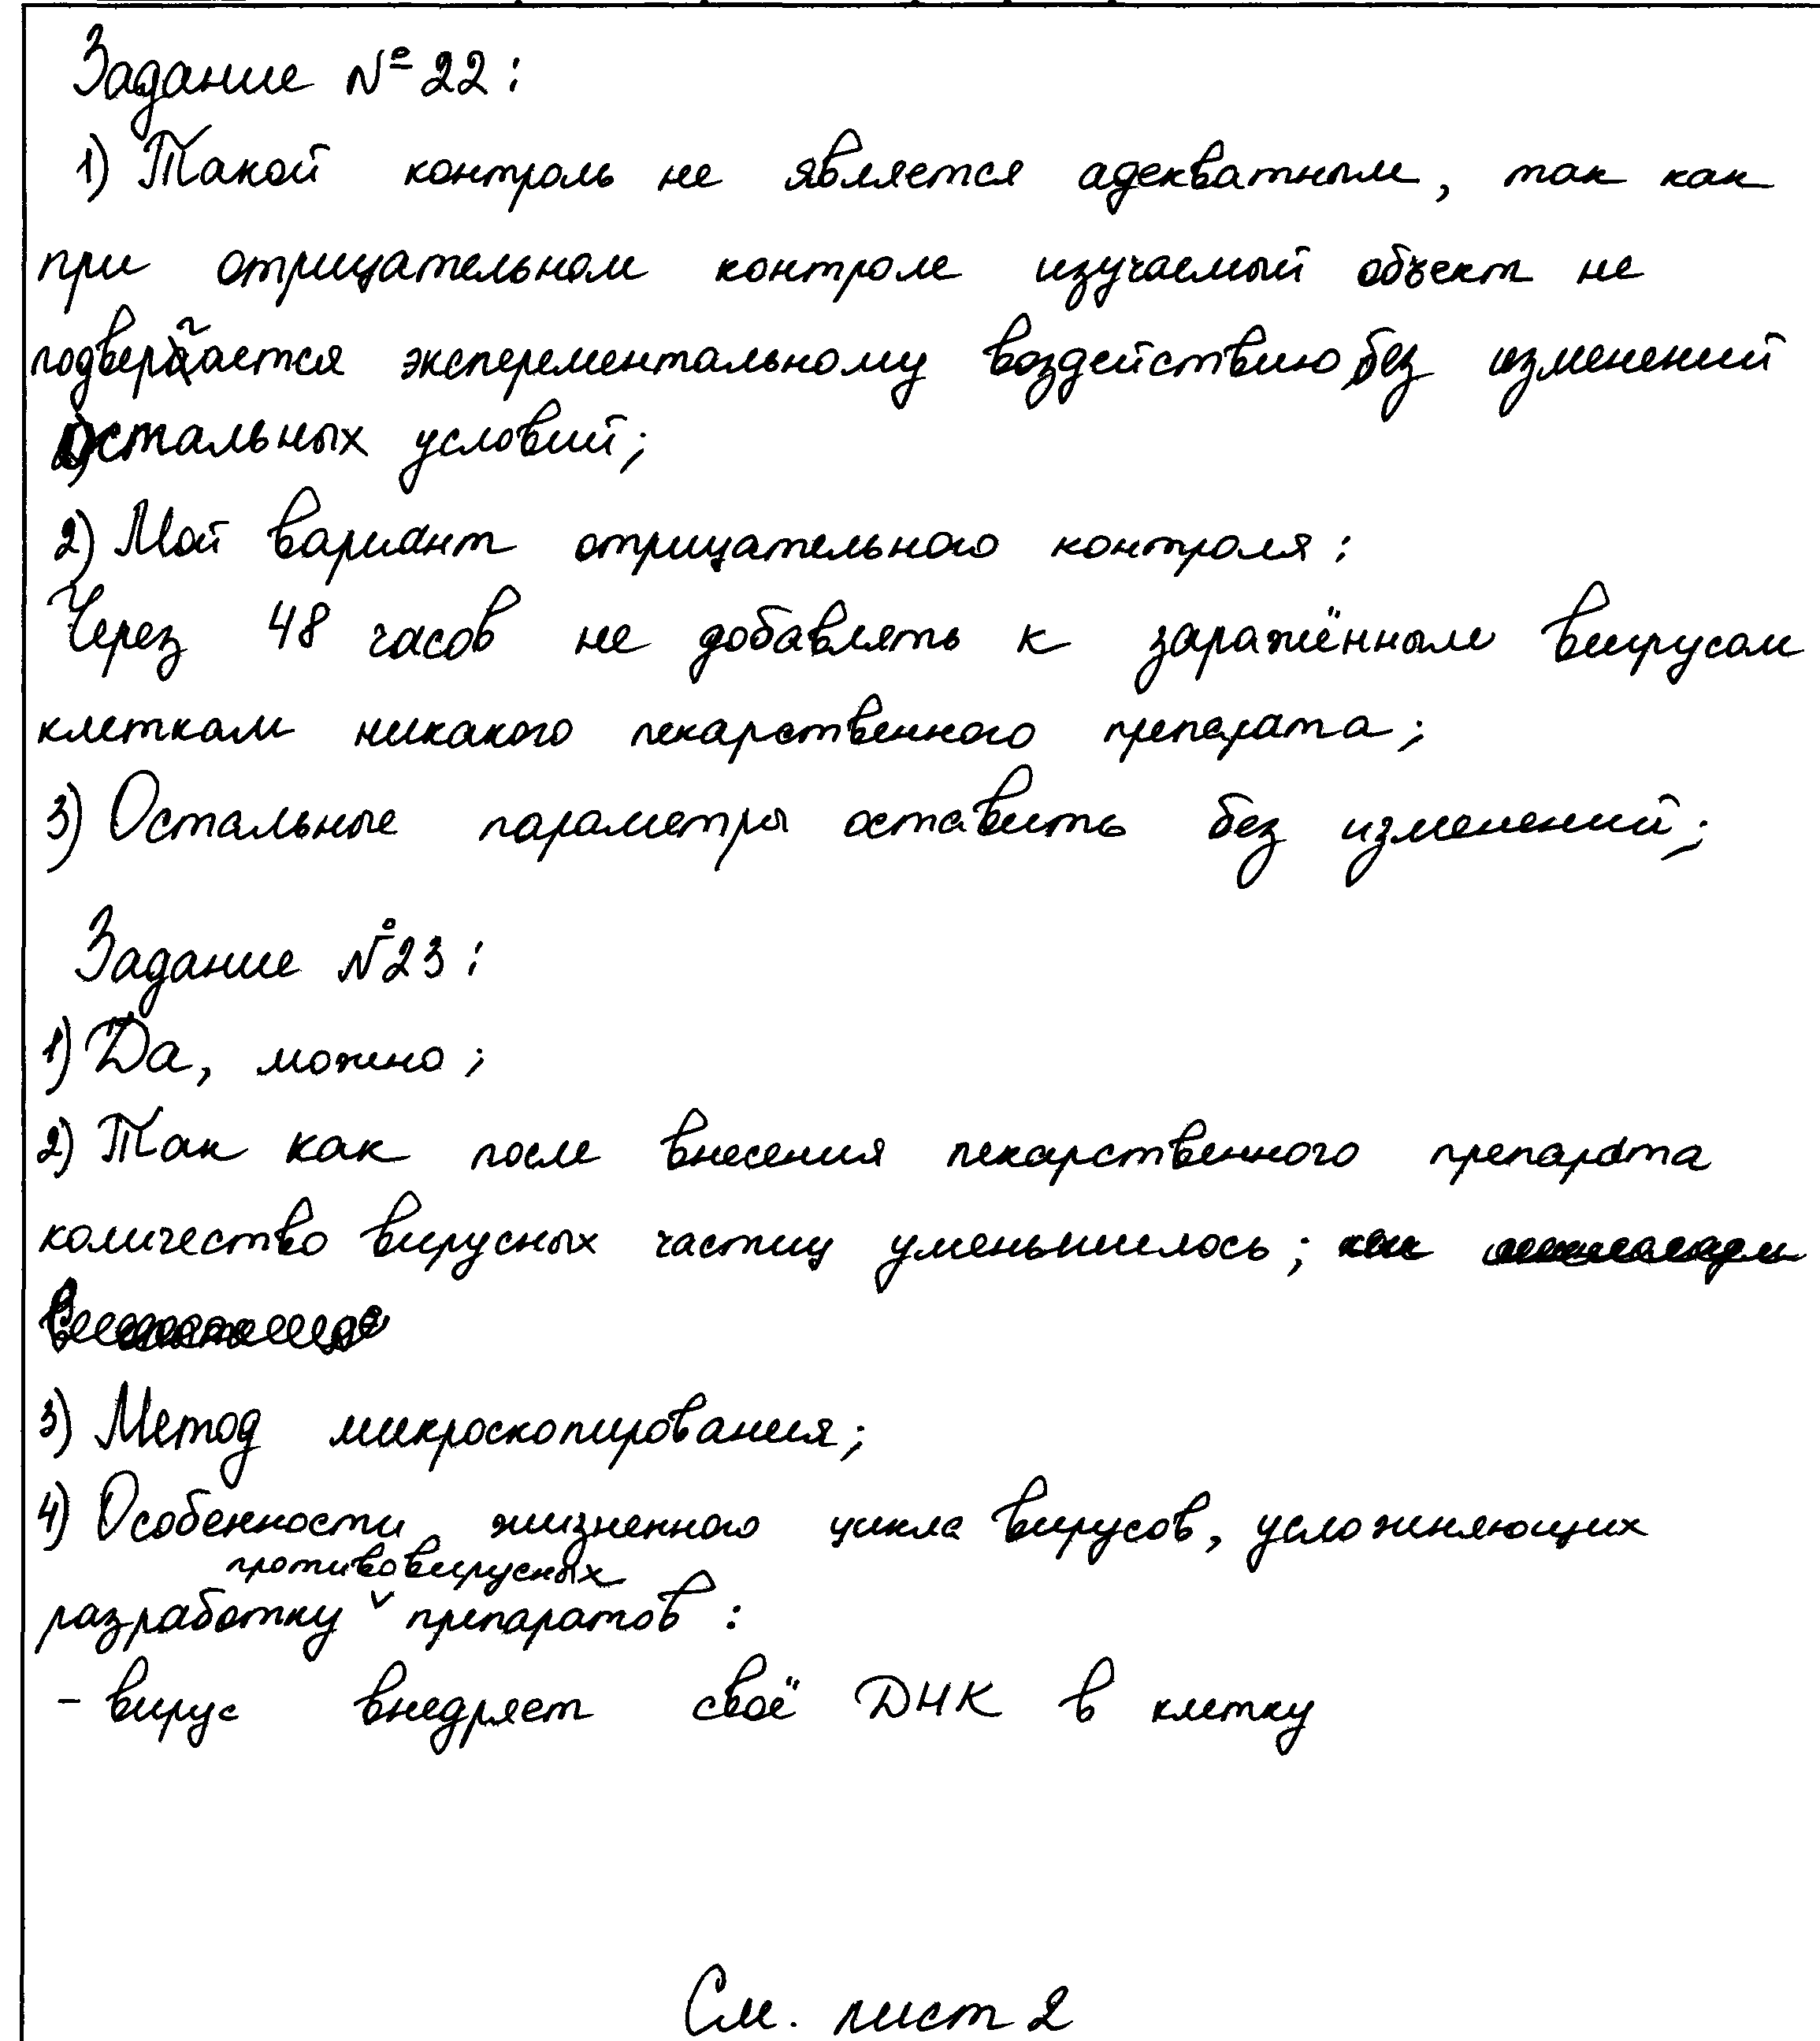 Задание №22:
1) Такой контроль не является адекватным, так как
при отрицательном контроле изучаемый объект не
подвергается эксперементальному воздействию, без изменений
остальных условий;
2) Мой вариант отрицательного контроля:
Через 48 часов не добавлять к заражённым вирусом
клеткам никакого лекарственного препарата;
3) Остальные параметры оставить без изменений;
Задание №23:
1) Да, можно;
2) Так как после внесения лекарственного препарата
количество вирусных частиц уменьшилось;
3) Метод микроскопирования;
4) Особенности жизненного цикла вирусов, усложняющих
противовирусных
разработку препаратов:
- вирус внедряет своё ДНК в клетку
См. лист 2